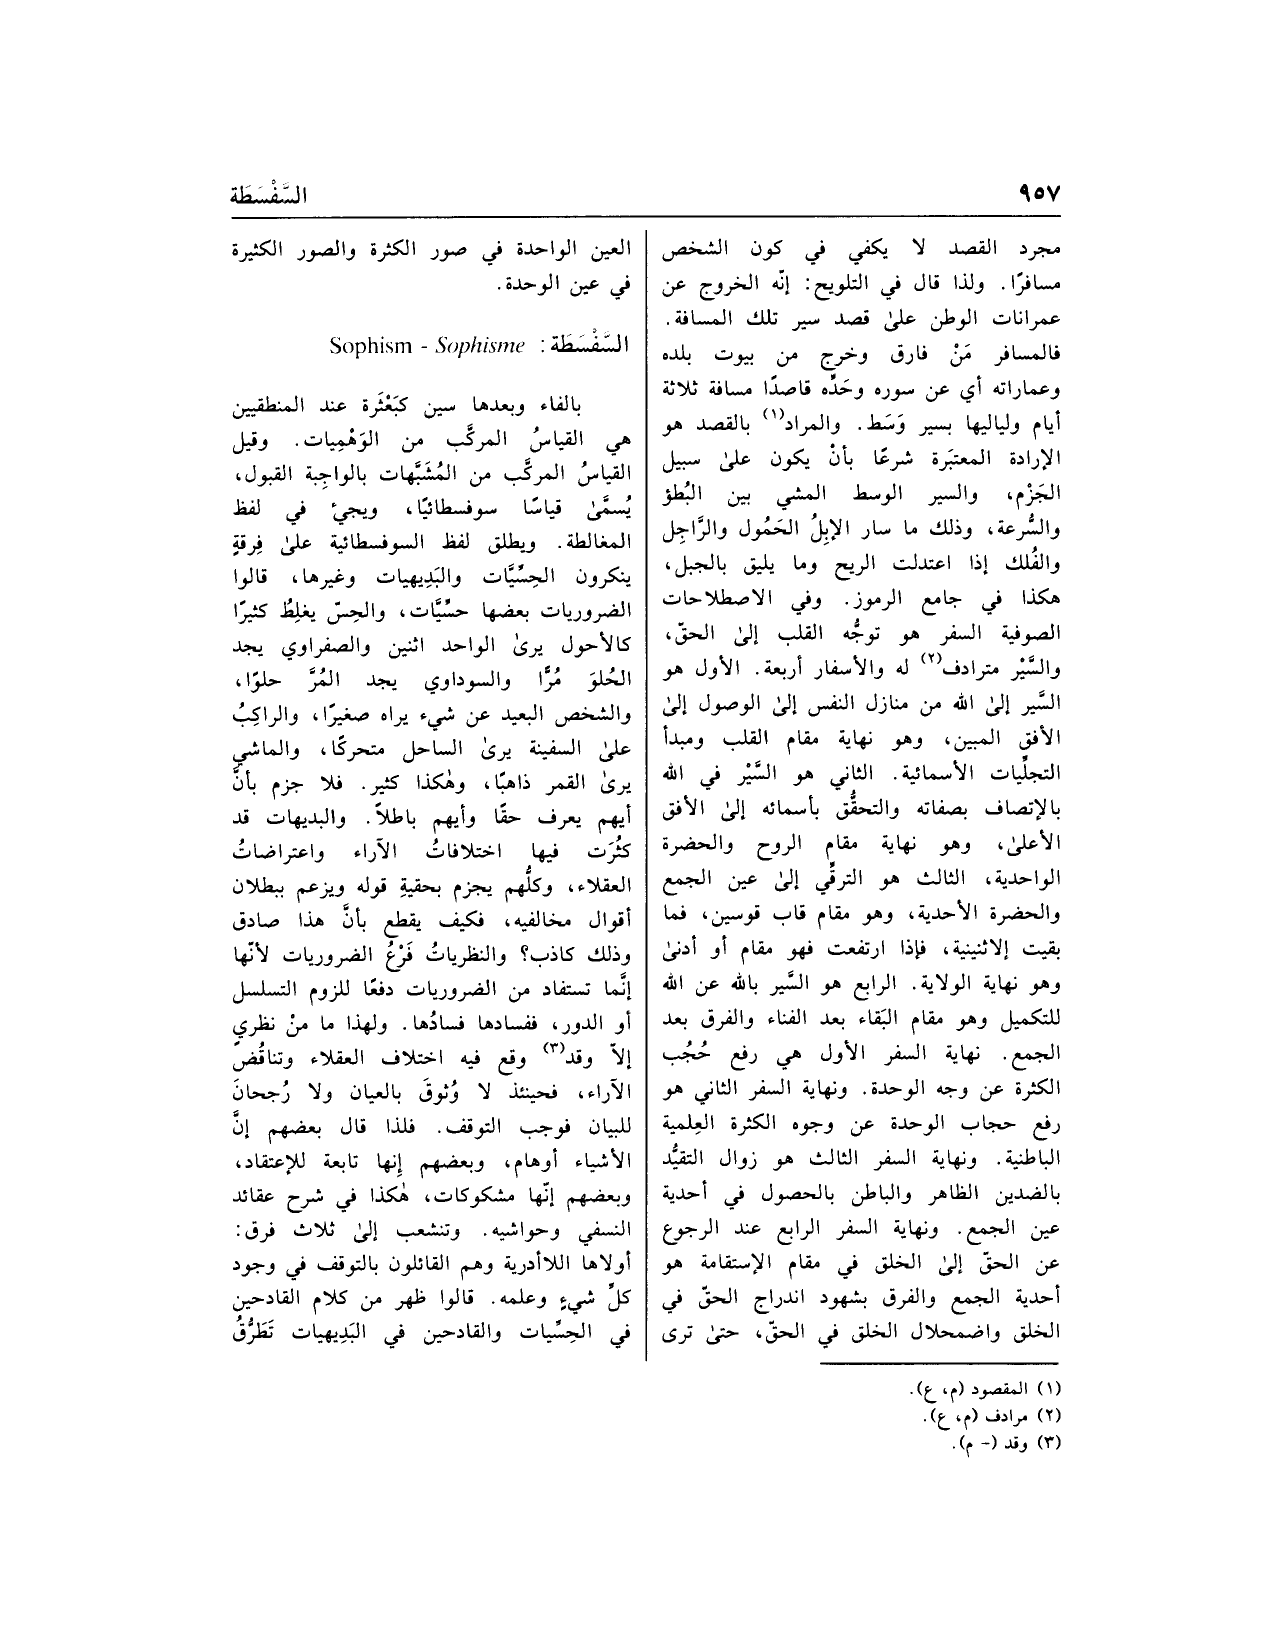 ٩٥٧
السَّفْسَطَة
مجرد القصد لا يكفي في كون الشخص
مسافرًا. ولذا قال في التلويح: إنّه الخروج عن
عمرانات الوطن علىٰ قصد سير تلك المسافة.
فالمسافر مَنْ فارق وخرج من بيوت بلده
وعماراته أي عن سوره وحَدِّه قاصدًا مسافة ثلاثة
أيام ولياليها بسير وَسَط. والمراد(١) بالقصد هو
الإرادة المعتبَرة شرعًا بأنْ يكون علىٰ سبيل
الجَزْم، والسير الوسط المشي بين البُطؤ
والسُّرعة، وذلك ما سار الإبِلُ الحَمُول والرَّاجِل
والفُلك إذا اعتدلت الريح وما يليق بالجبل،
هكذا في جامع الرموز. وفي الاصطلاحات
الصوفية السفر هو توجُّه القلب إلىٰ الحقّ،
والسَّيْر مترادف(٢) له والأسفار أربعة. الأول هو
السَّير إلىٰ الله من منازل النفس إلىٰ الوصول إلىٰ
الأفق المبين، وهو نهاية مقام القلب ومبدأ
التجلِّيات الأسمائية. الثاني هو السَّيْر في الله
بالإتصاف بصفاته والتحقُّق بأسمائه إلىٰ الأفق
الأعلىٰ، وهو نهاية مقام الروح والحضرة
الواحدية، الثالث هو الترقِّي إلىٰ عين الجمع
والحضرة الأحدية، وهو مقام قاب قوسين، فما
بقيت إلاثنينية، فإذا ارتفعت فهو مقام أو أدنىٰ
وهو نهاية الولاية. الرابع هو السَّير بالله عن الله
للتكميل وهو مقام البَقاء بعد الفناء والفرق بعد
الجمع. نهاية السفر الأول هي رفع حُجُب
الكثرة عن وجه الوحدة. ونهاية السفر الثاني هو
رفع حجاب الوحدة عن وجوه الكثرة العِلمية
الباطنية. ونهاية السفر الثالث هو زوال التقيُّد
بالضدين الظاهر والباطن بالحصول في أحدية
عين الجمع. ونهاية السفر الرابع عند الرجوع
عن الحقّ إلىٰ الخلق في مقام الإستقامة هو
أحدية الجمع والفرق بشهود اندراج الحقّ في
الخلق واضمحلال الخلق في الحقّ، حتىٰ ترى
العين الواحدة في صور الكثرة والصور الكثيرة
في عين الوحدة.
السَّفْسَطَة: Sophism - Sophisme
بالفاء وبعدها سين كبَعْثَرة عند المنطقيين
هي القياسُ المركَّب من الوَهْمِيات. وقيل
القياسُ المركَّب من المُشَبَّهات بالواجِبة القبول،
يُسمَّىٰ قياسًا سوفسطائيًا، ويجئ في لفظ
المغالطة. ويطلق لفظ السوفسطائية علىٰ فِرقةٍ
ينكرون الحِسِّيَّات والبَدِيهيات وغيرها، قالوا
الضروريات بعضها حسِّيَّات، والحِسّ يغلِطُ كثيرًا
كالأحول يرىٰ الواحد اثنين والصفراوي يجد
الحُلوَ مُرًّا والسوداوي يجد المُرَّ حلوًا،
والشخص البعيد عن شيء يراه صغيرًا، والراكِبُ
علىٰ السفينة يرىٰ الساحل متحركًا، والماشي
يرىٰ القمر ذاهبًا، وهٰكذا كثير. فلا جزم بأنَّ
أيهم يعرف حقًا وأيهم باطلاً. والبديهات قد
كثُرَت فيها اختلافاتُ الآراء واعتراضاتُ
العقلاء، وكلُّهم يجزم بحقيةِ قوله ويزعم ببطلان
أقوال مخالفيه، فكيف يقطع بأنَّ هذا صادق
وذلك كاذب؟ والنظرياتُ فَرْعُ الضروريات لأنّها
إنَّما تستفاد من الضروريات دفعًا للزوم التسلسل
أو الدور، ففسادها فسادُها. ولهذا ما منْ نظري
إلاّ وقد(٣) وقع فيه اختلاف العقلاء وتناقُضُ
الآراء، فحينئذ لا وُثوقَ بالعيان ولا رُجحانَ
للبيان فوجب التوقف. فلذا قال بعضهم إنَّ
الأشياء أوهام، وبعضهم إنها تابعة للإعتقاد،
وبعضهم إنّها مشكوكات، هٰكذا في شرح عقائد
النسفي وحواشيه. وتنشعب إلىٰ ثلاث فرق:
أولاها اللاأدرية وهم القائلون بالتوقف في وجود
كلِّ شيءٍ وعلمه. قالوا ظهر من كلام القادحين
في الحِسِّيات والقادحين في البَدِيهيات تَطَرُّقُ
(١) المقصود (م، ع).
(٢) مرادف (م، ع).
(٣) وقد (- م).